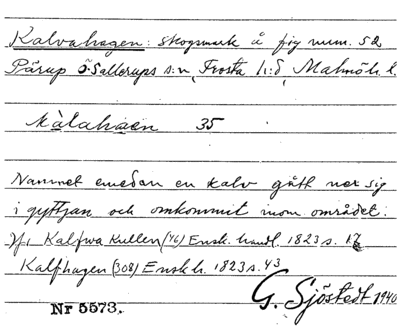 Kalvahagen: skogsmark å fig num. 52
Pärup Ö Sallerups s:n, Frosta h:d, Malmöh. l.
kàlahaen 35
Namnet emedan en kalv gått ner sig
i gyttjan och omkommit inom området.
Jfr Kalfwa Kullen (46) Ensk. handl. 1823 s. 17
Kalfhagen (308) Ensk h. 1823 s. 43
G. Sjöstedt 1940
Nr 5573.